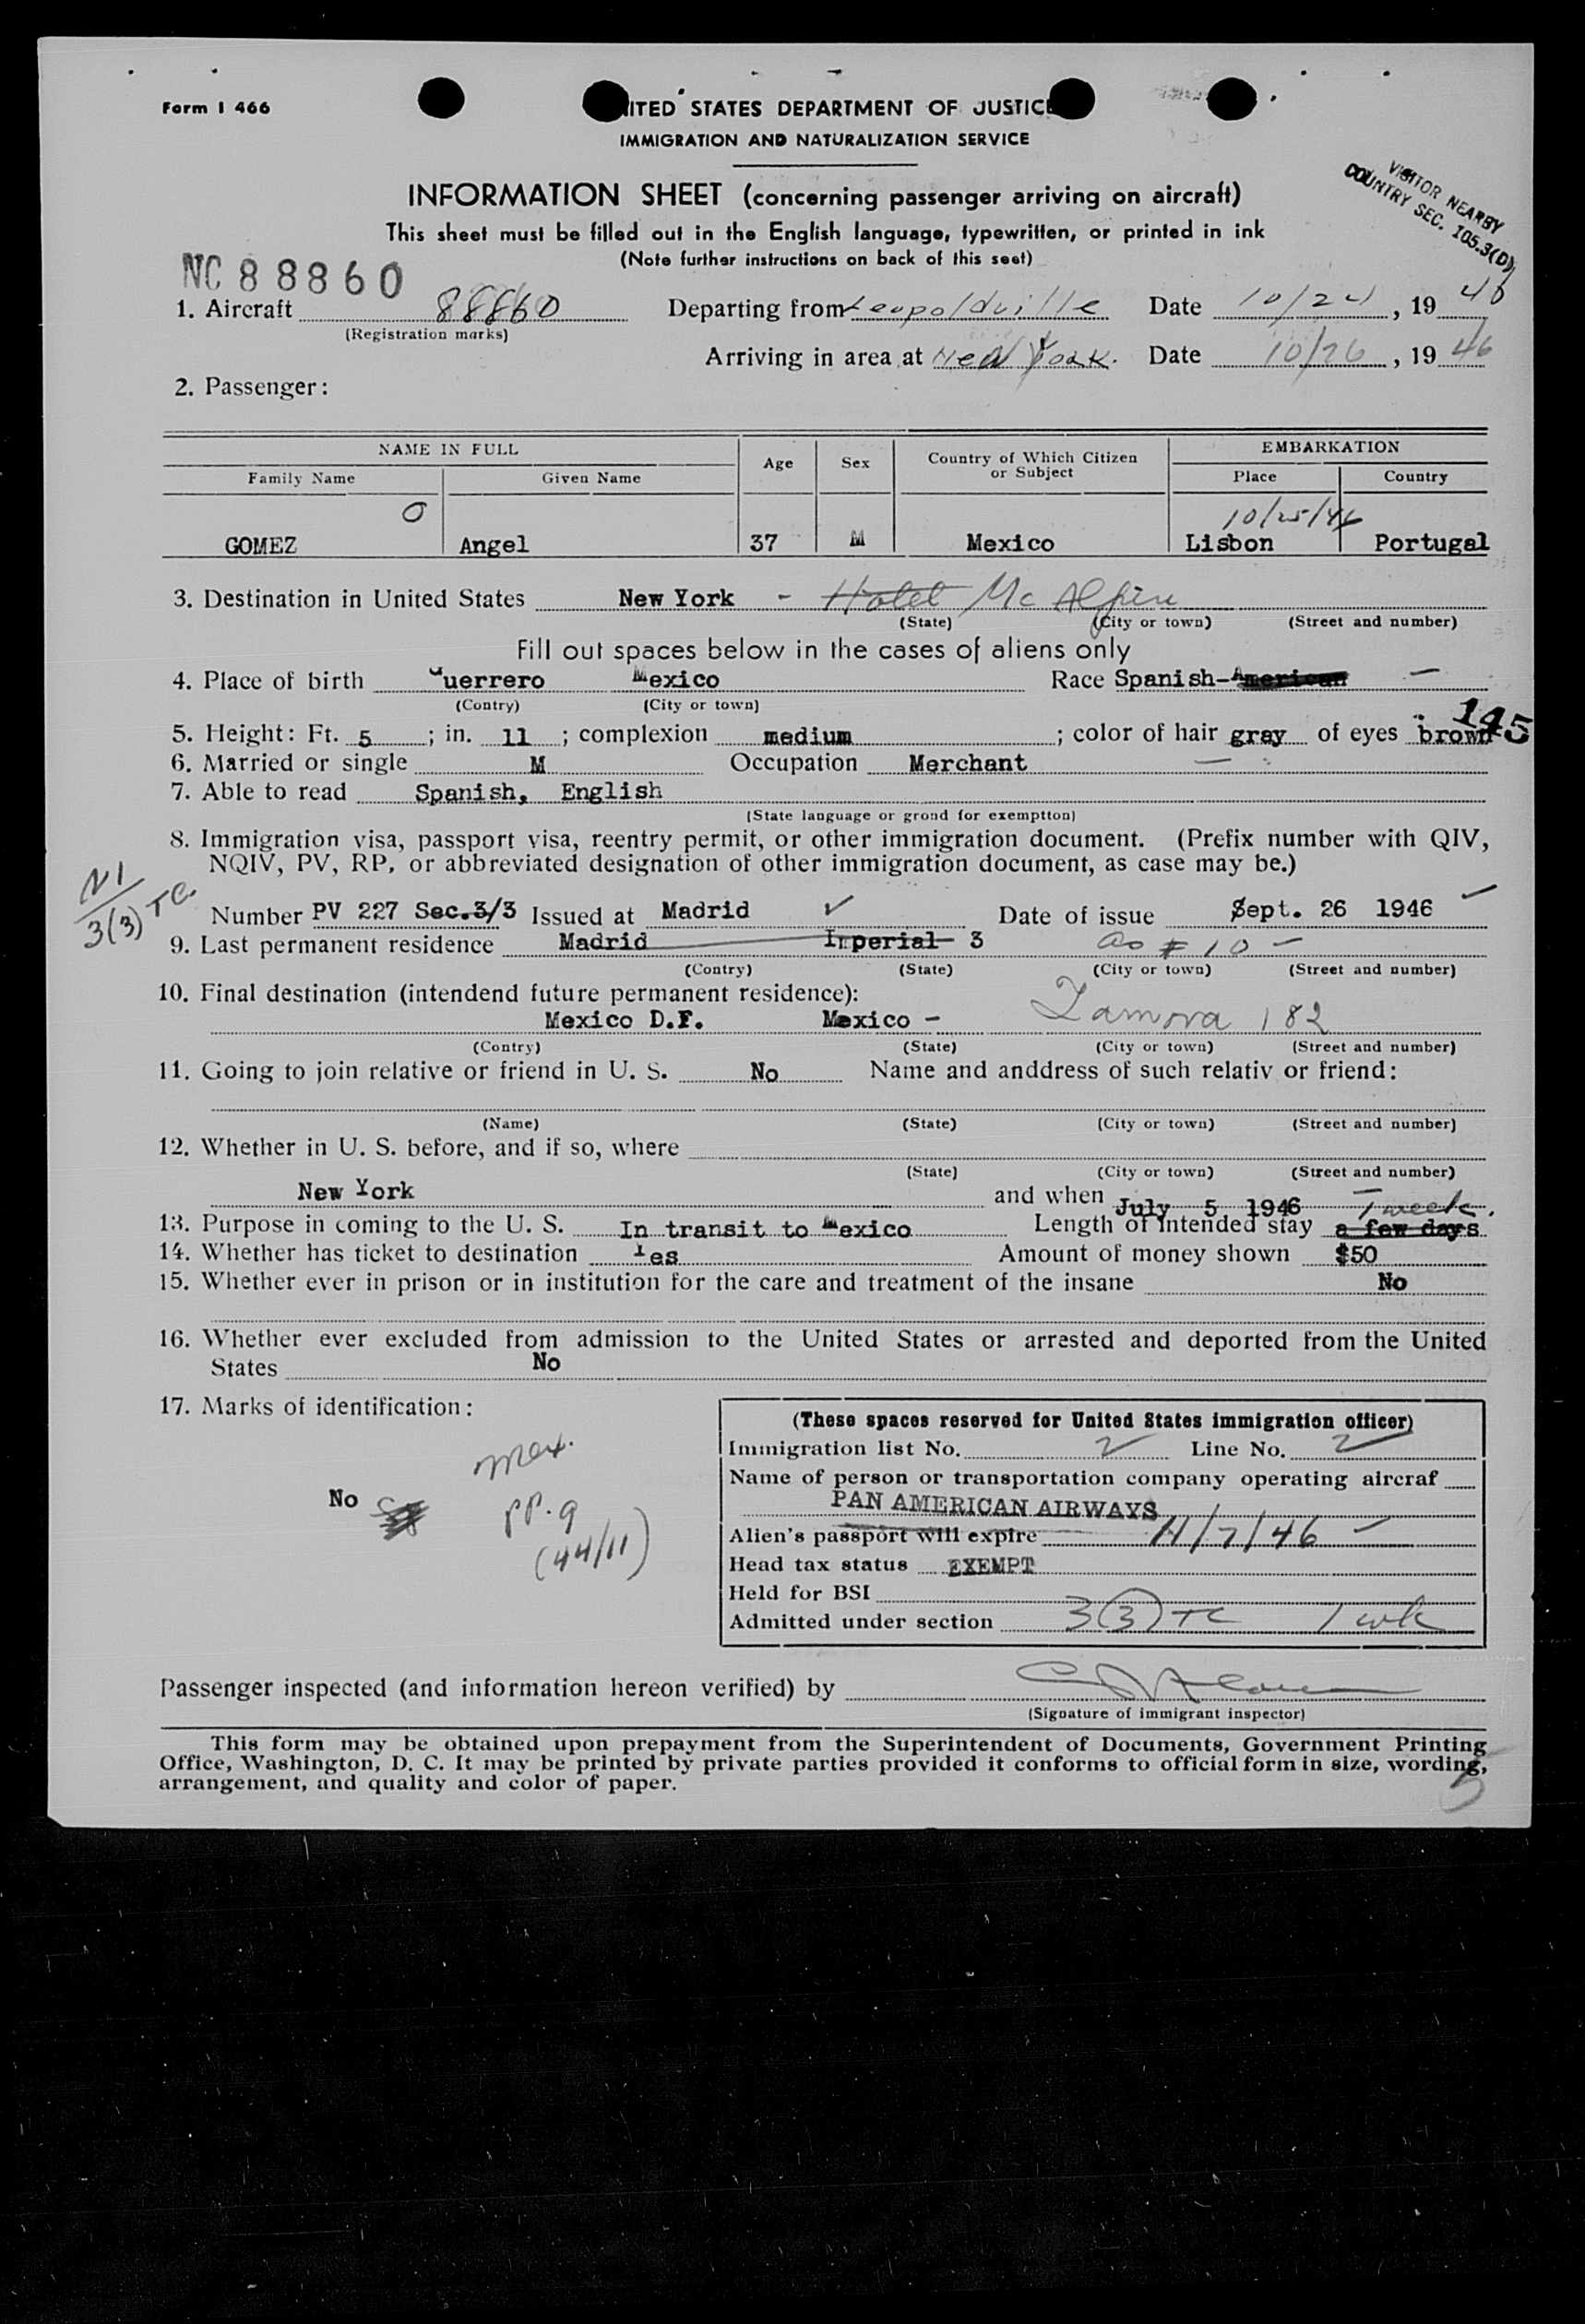 Form I 466
UNITED STATES DEPARTMENT OF JUSTICE
IMMIGRATION AND NATURALIZATION SERVICE
VISITOR NEARBY
COUNTRY SEC. 105.3(D)
INFORMATION SHEET (concerning passenger arriving on aircraft)
This sheet must be filled out in the English language, typewritten, or printed in ink
(Note further instructions on back of this seet)
NC 88860
1. Aircraft 88860 Departing from Leopoldville Date 10/24, 1946
(Registration marks)
Arriving in area at New York. Date 10/26, 1946
2. Passenger:
NAME IN FULL Age Sex Country of Which Citizen or Subject EMBARKATION
Family Name Given Name Place Country
O 10/25/46
GOMEZ Angel 37 M Mexico Lisbon Portugal
3. Destination in United States New York - Hotel Mc Alpin
(State) (City or town) (Street and number)
Fill out spaces below in the cases of aliens only
4. Place of birth Guerrero Mexico Race Spanish-American
(Contry) (City or town)
145
5. Height: Ft. 5; in. 11; complexion medium; color of hair gray of eyes brown
6. Married or single M Occupation Merchant
7. Able to read Spanish, English
(State language or grond for exemptton)
8. Immigration visa, passport visa, reentry permit, or other immigration document. (Prefix number with QIV,
NQIV, PV, RP, or abbreviated designation of other immigration document, as case may be.)
3(3) TC.
Number PV 227 Sec.3/3 Issued at Madrid Date of issue Sept. 26 1946
9. Last permanent residence Madrid Imperial 3 as # 10 -
(Contry) (State) (City or town) (Street and number)
10. Final destination (intendend future permanent residence):
Mexico D.F. Mexico - Zamora 182
(Contry) (State) (City or town) (Street and number)
11. Going to join relative or friend in U. S. No Name and anddress of such relativ or friend:
(Name) (State) (City or town) (Street and number)
12. Whether in U. S. before, and if so, where
(State) (City or town) (Street and number)
New York and when July 5 1946 1 week.
13. Purpose in coming to the U. S. In transit to Mexico Length of intended stay a few days
14. Whether has ticket to destination Yes Amount of money shown $50
15. Whether ever in prison or in institution for the care and treatment of the insane No
16. Whether ever excluded from admission to the United States or arrested and deported from the United
States No
17. Marks of identification:
No
Mex.
PP. 9
(44/11)
(These spaces reserved for United States immigration officer)
Immigration list No. 2 Line No. 2
Name of person or transportation company operating aircraf
PAN AMERICAN AIRWAYS
Alien's passport will expire 11/7/46
Head tax status EXEMPT
Held for BSI
Admitted under section 3(3) TC 1 wk
Passenger inspected (and information hereon verified) by
(Signature of immigrant inspector)
This form may be obtained upon prepayment from the Superintendent of Documents, Government Printing
Office, Washington, D. C. It may be printed by private parties provided it conforms to official form in size, wording,
arrangement, and quality and color of paper.
5